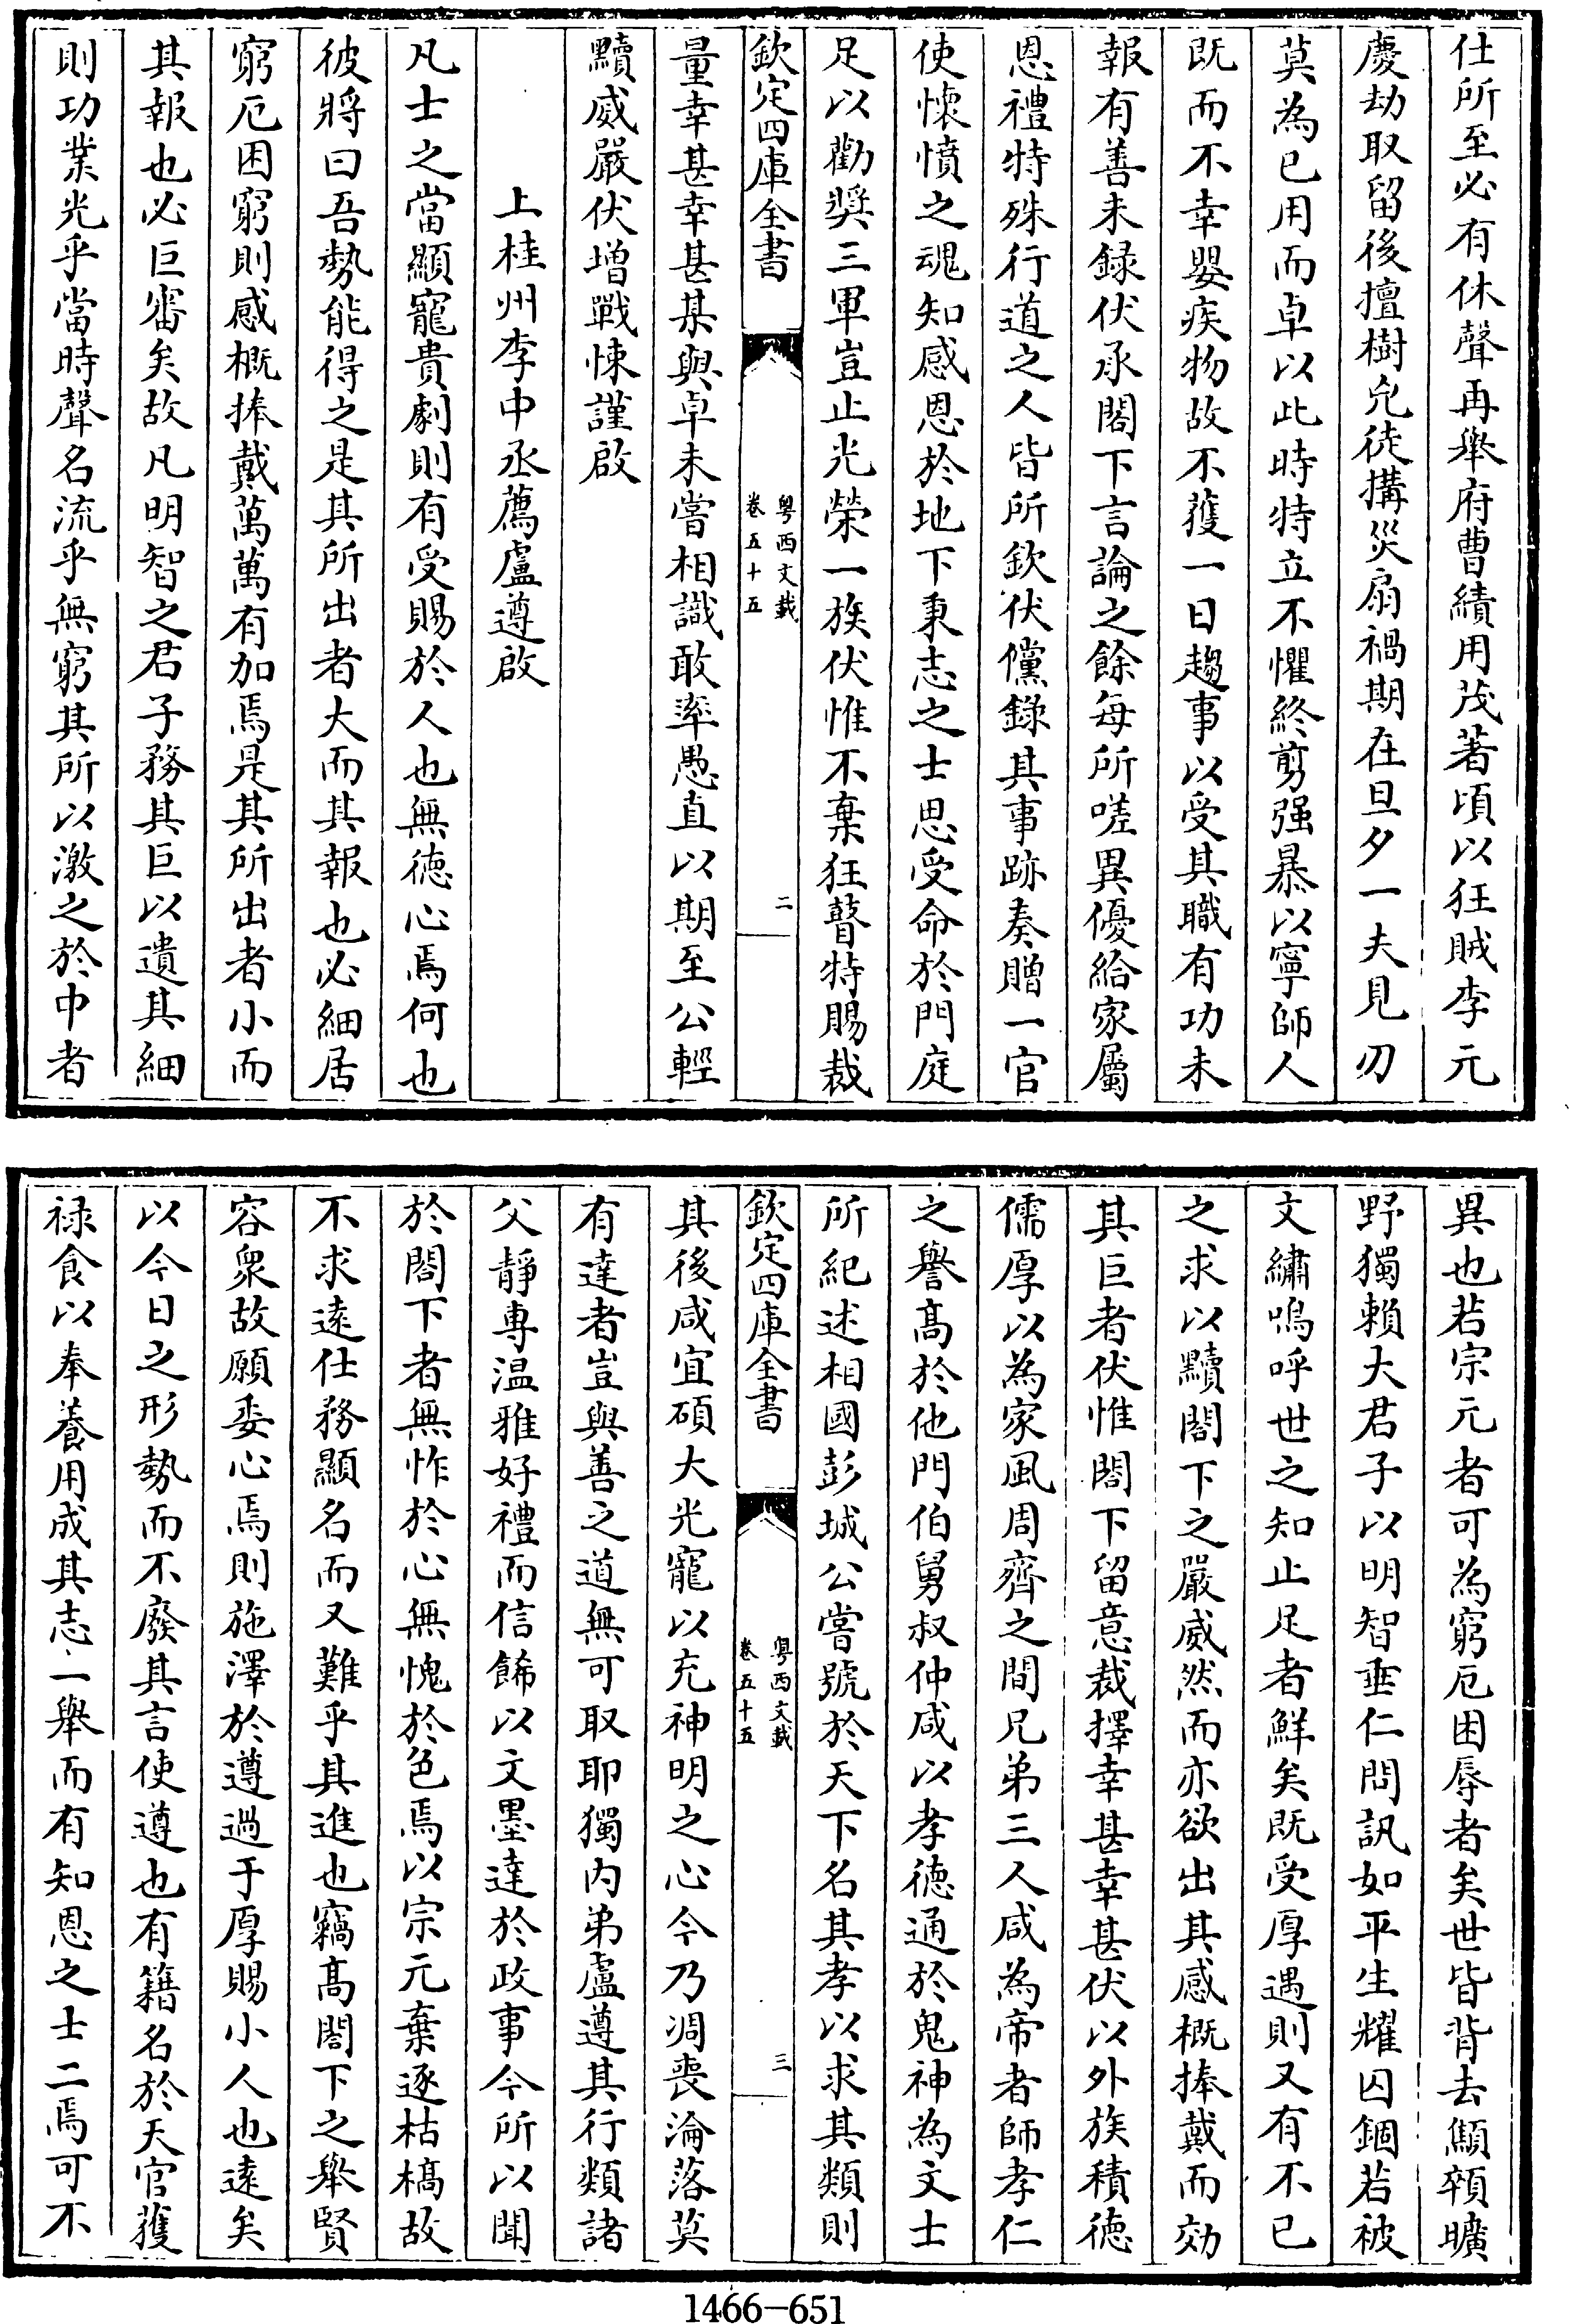 仕所至必有休聲再舉府曹績用茂著頃以狂賊李元
慶劫取留後擅樹兇徒搆災扇禍期在旦夕一夫見刃
莫為已用而卓以此時特立不懼終剪强暴以寧師人
既而不幸嬰疾物故不獲一日趨事以受其職有功未
報有善未録伏承閣下言論之餘每所嗟異優給家屬
恩禮特殊行道之人皆所欽伏儻錄其事跡奏贈一官
使懷憤之魂知感恩於地下秉志之士思受命於門庭
足以勸奬三軍豈止光榮一族伏惟不棄狂瞽特賜裁
欽定四庫全書
粤西文載
卷五十五
二
量幸甚幸甚某與卓未嘗相識敢率愚直以期至公輕
黷威嚴伏增戰悚謹啟
上桂州李中丞薦盧遵啟
凡士之當顯寵貴劇則有受賜於人也無德心焉何也
彼將曰吾勢能得之是其所出者大而其報也必細居
窮厄困窮則感槪捧戴萬萬有加焉是其所出者小而
其報也必巨審矣故凡明智之君子務其巨以遺其細
則功業光乎當時聲名流乎無窮其所以激之於中者
異也若宗元者可為窮厄困辱者矣世皆背去顦顇曠
野獨賴大君子以明智垂仁問訊如平生耀囚錮若被
文繡嗚呼世之知止足者鮮矣既受厚遇則又有不已
之求以黷閣下之嚴威然而亦欲出其感槪捧戴而効
其巨者伏惟閣下留意裁擇幸甚幸甚伏以外族積德
儒厚以為家風周齊之間兄弟三人咸為帝者師孝仁
之譽髙於他門伯舅叔仲咸以孝德通於鬼神為文士
所紀述相國彭城公嘗號於天下名其孝以求其類則
欽定四庫全書
粤西文載
卷五十五
三
其後咸宜碩大光寵以充神明之心今乃凋喪淪落莫
有達者豈與善之道無可取耶獨内弟盧遵其行類諸
父靜專温雅好禮而信餙以文墨達於政事今所以聞
於閣下者無怍於心無愧於色焉以宗元棄逐枯槁故
不求逺仕務顯名而又難乎其進也竊髙閣下之舉賢
容衆故願委心焉則施澤於遵過于厚賜小人也逺矣
以今日之形勢而不廢其言使遵也有籍名於天官獲
禄食以奉養用成其志一舉而有知恩之士二焉可不
1466-651